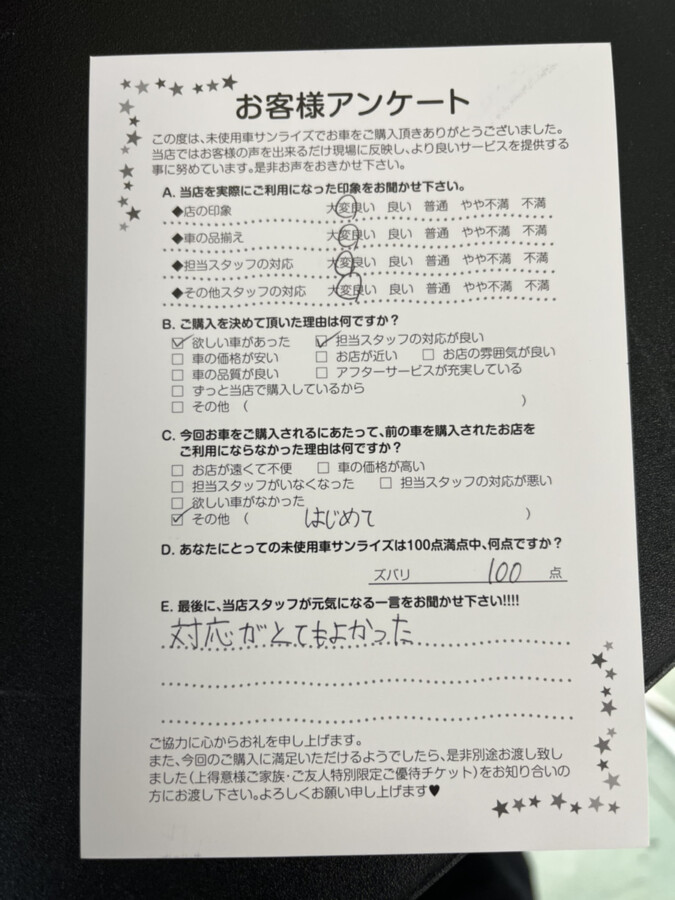 お客様アンケート
この度は、未使用車サンライズでお車をご購入頂きありがとうございました。
当店ではお客様の声を出来るだけ現場に反映し、より良いサービスを提供する
事に努めています。是非お声をおきかせ下さい。
A. 当店を実際にご利用になった印象をお聞かせ下さい。
◆店の印象 大変良い 良い 普通 やや不満 不満
◆車の品揃え 大変良い 良い 普通 やや不満 不満
◆担当スタッフの対応 大変良い 良い 普通 やや不満 不満
◆その他スタッフの対応 大変良い 良い 普通 やや不満 不満
B. ご購入を決めて頂いた理由は何ですか？
☑ 欲しい車があった ☑ 担当スタッフの対応が良い
□ 車の価格が安い □ お店が近い □ お店の雰囲気が良い
□ 車の品質が良い □ アフターサービスが充実している
□ ずっと当店で購入しているから
□ その他 ( )
C. 今回お車をご購入されるにあたって、前の車を購入されたお店を
ご利用にならなかった理由は何ですか？
□ お店が遠くて不便 □ 車の価格が高い
□ 担当スタッフがいなくなった □ 担当スタッフの対応が悪い
□ 欲しい車がなかった
☑ その他 ( はじめて )
D. あなたにとっての未使用車サンライズは100点満点中、何点ですか？
ズバリ 100 点
E. 最後に、当店スタッフが元気になる一言をお聞かせ下さい!!!!
対応がとてもよかった
ご協力に心からお礼を申し上げます。
また、今回のご購入に満足いただけるようでしたら、是非別途お渡し致し
ました（上得意様ご家族・ご友人特別限定ご優待チケット）をお知り合いの
方にお渡し下さい。よろしくお願い申し上げます♥